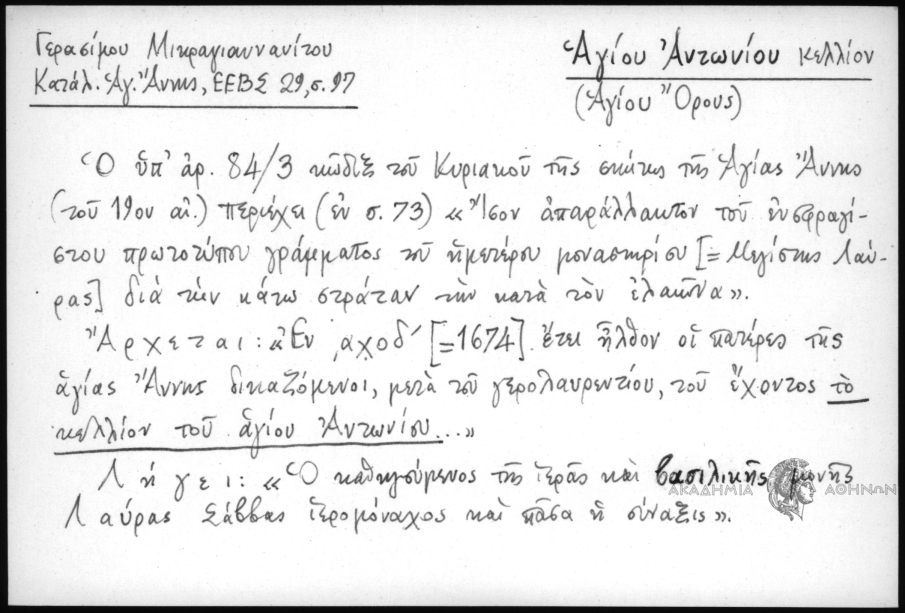 Γερασίμου Μικραγιαννανίτου
Κατάλ. Ἁγ. Ἄννης, ΕΕΒΣ 29, σ. 97
Ἁγίου Ἀντωνίου κελλίον
(Ἁγίου Ὄρους)
Ὁ ὑπ' ἀρ. 84/3 κῶδιξ τοῦ Κυριακοῦ τῆς σκήτης τῆς Ἁγίας Ἄννης
(τοῦ 19ου αἰ.) περιέχει (ἐν σ. 73) «Ἴσον ἀπαράλλακτον τοῦ ἐνσφραγί-
στου πρωτοτύπου γράμματος τοῦ ἡμετέρου μοναστηρίου [= Μεγίστης Λαύ-
ρας] διὰ τὴν κάτω στράταν τὴν κατὰ τὸν ἐλαιῶνα».
Ἄρχεται: «Ἐν ͵αχοδʹ [=1674] ἔτει ἦλθον οἱ πατέρες τῆς
ἁγίας Ἄννης δικαζόμενοι, μετὰ τοῦ γερολαυρεντίου, τοῦ ἔχοντος τὸ
κελλίον τοῦ ἁγίου Ἀντωνίου...»
Λήγει: «Ὁ καθηγούμενος τῆς ἱερᾶς καὶ βασιλικῆς μονῆς
ΑΚΑΔΗΜΙΑ ΑΘΗΝΩΝ
Λαύρας Σάββας ἱερομόναχος καὶ πᾶσα ἡ σύναξις».